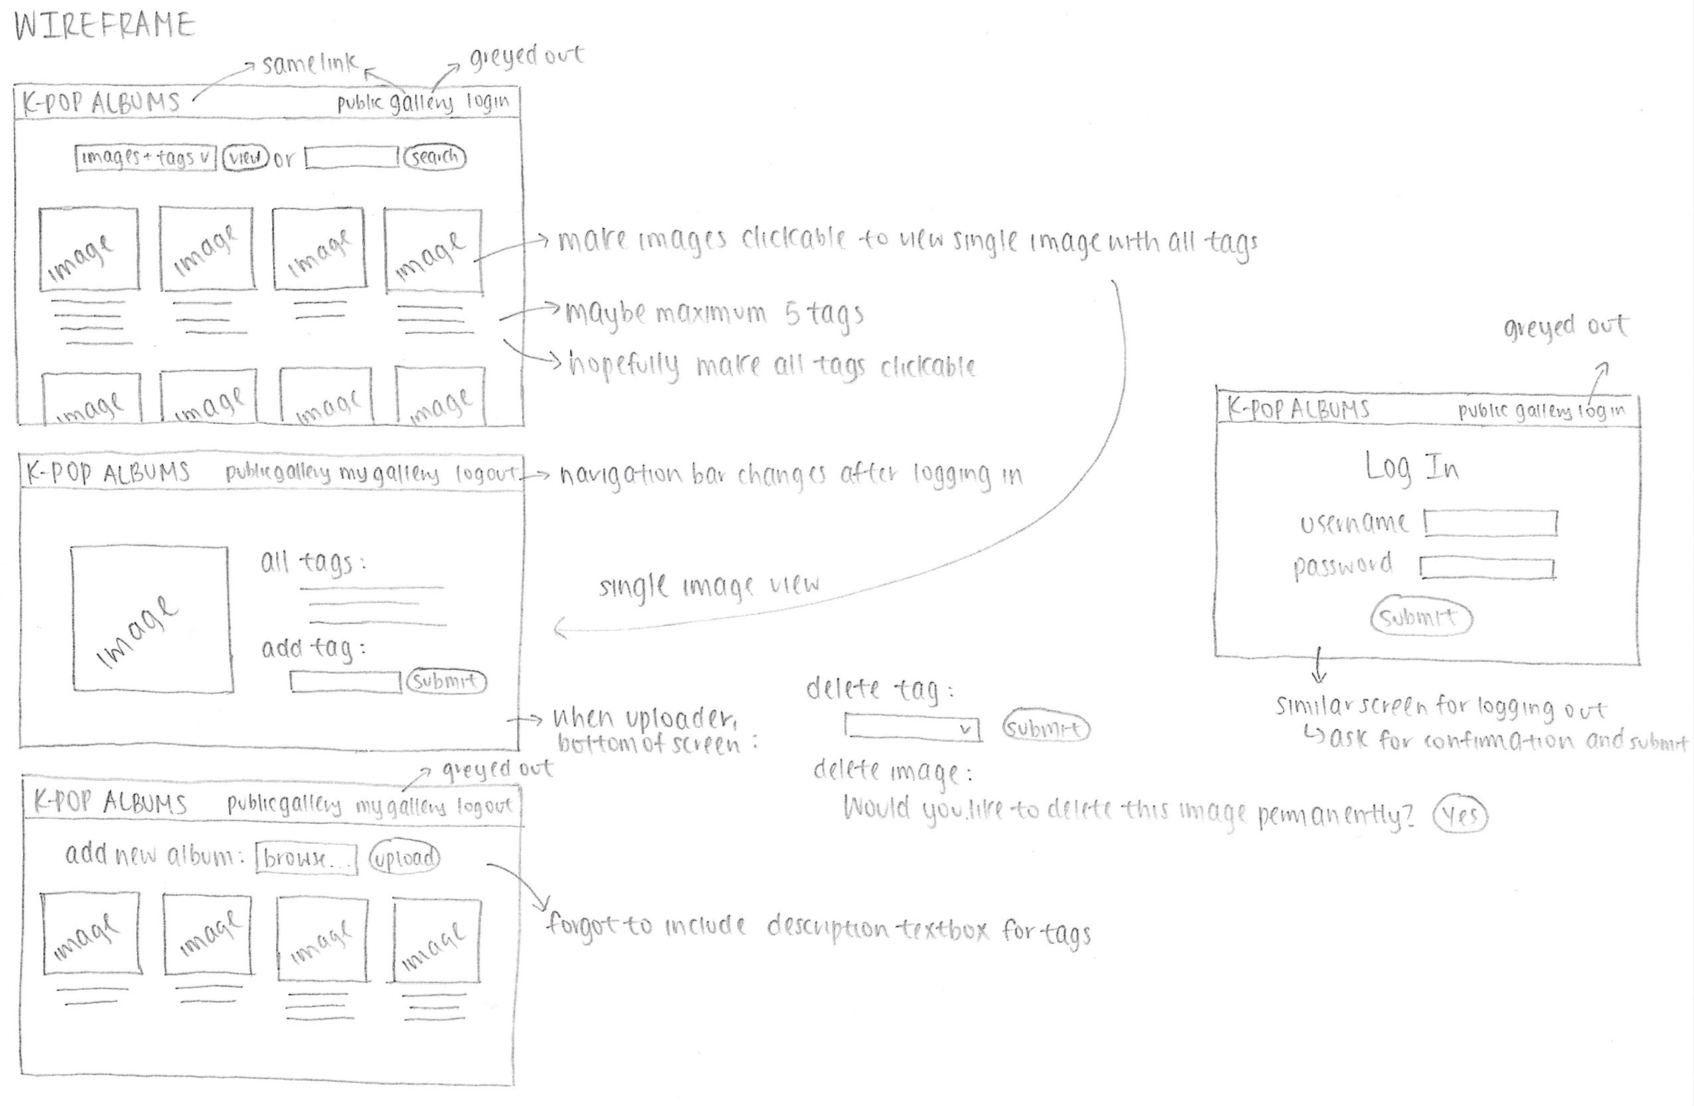 WIREFRAME
same link
greyed out
K-POP ALBUMS public gallery login
images + tags v view or search
image image image image
make images clickable to view single image with all tags
maybe maximum 5 tags
hopefully make all tags clickable
image image image image
K-POP ALBUMS public gallery my gallery logout
navigation bar changes after logging in
image
all tags:
add tag:
submit
single image view
when uploader,
bottom of screen:
delete tag:
v submit
delete image:
Would you like to delete this image permanently? yes
greyed out
K-POP ALBUMS public gallery my gallery logout
add new album: browse... upload
image image image image
forgot to include description textbox for tags
greyed out
K-POP ALBUMS public gallery log in
Log In
username
password
submit
similar screen for logging out
↳ ask for confirmation and submit